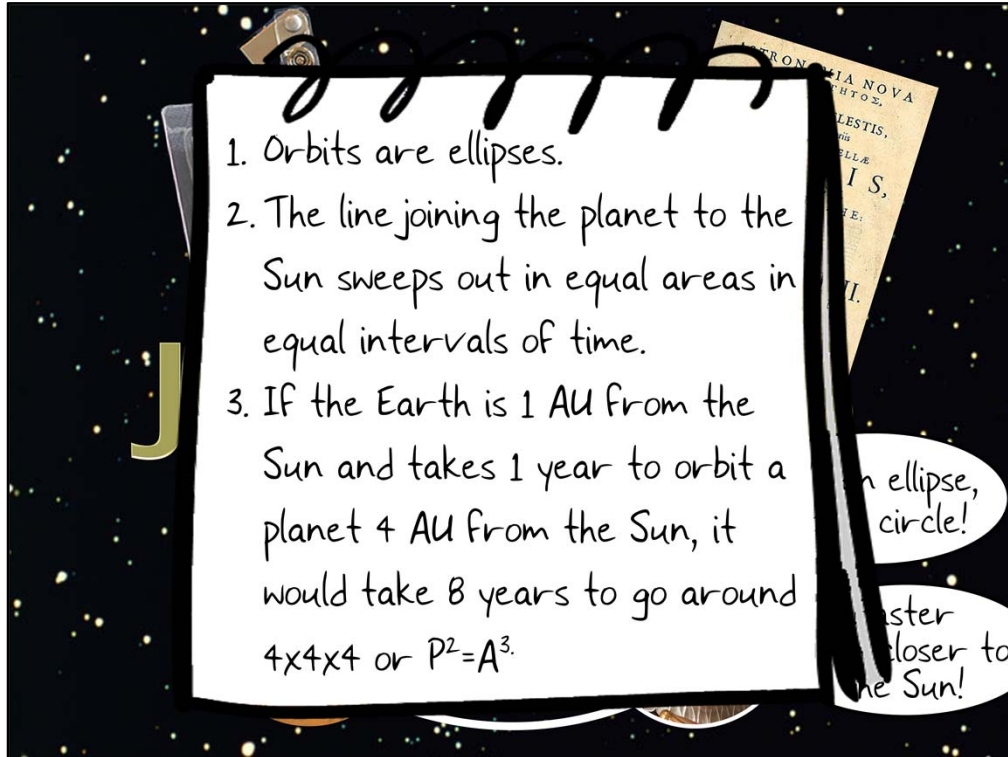 ASTRONOMIA NOVA
1. Orbits are ellipses.
2. The line joining the planet to the
Sun sweeps out in equal areas in
equal intervals of time.
3. If the Earth is 1 AU from the
Sun and takes 1 year to orbit a
planet 4 AU from the Sun, it
would take 8 years to go around
4x4x4 or P²=A³.
J
ellipse,
circle!
closer to
Sun!